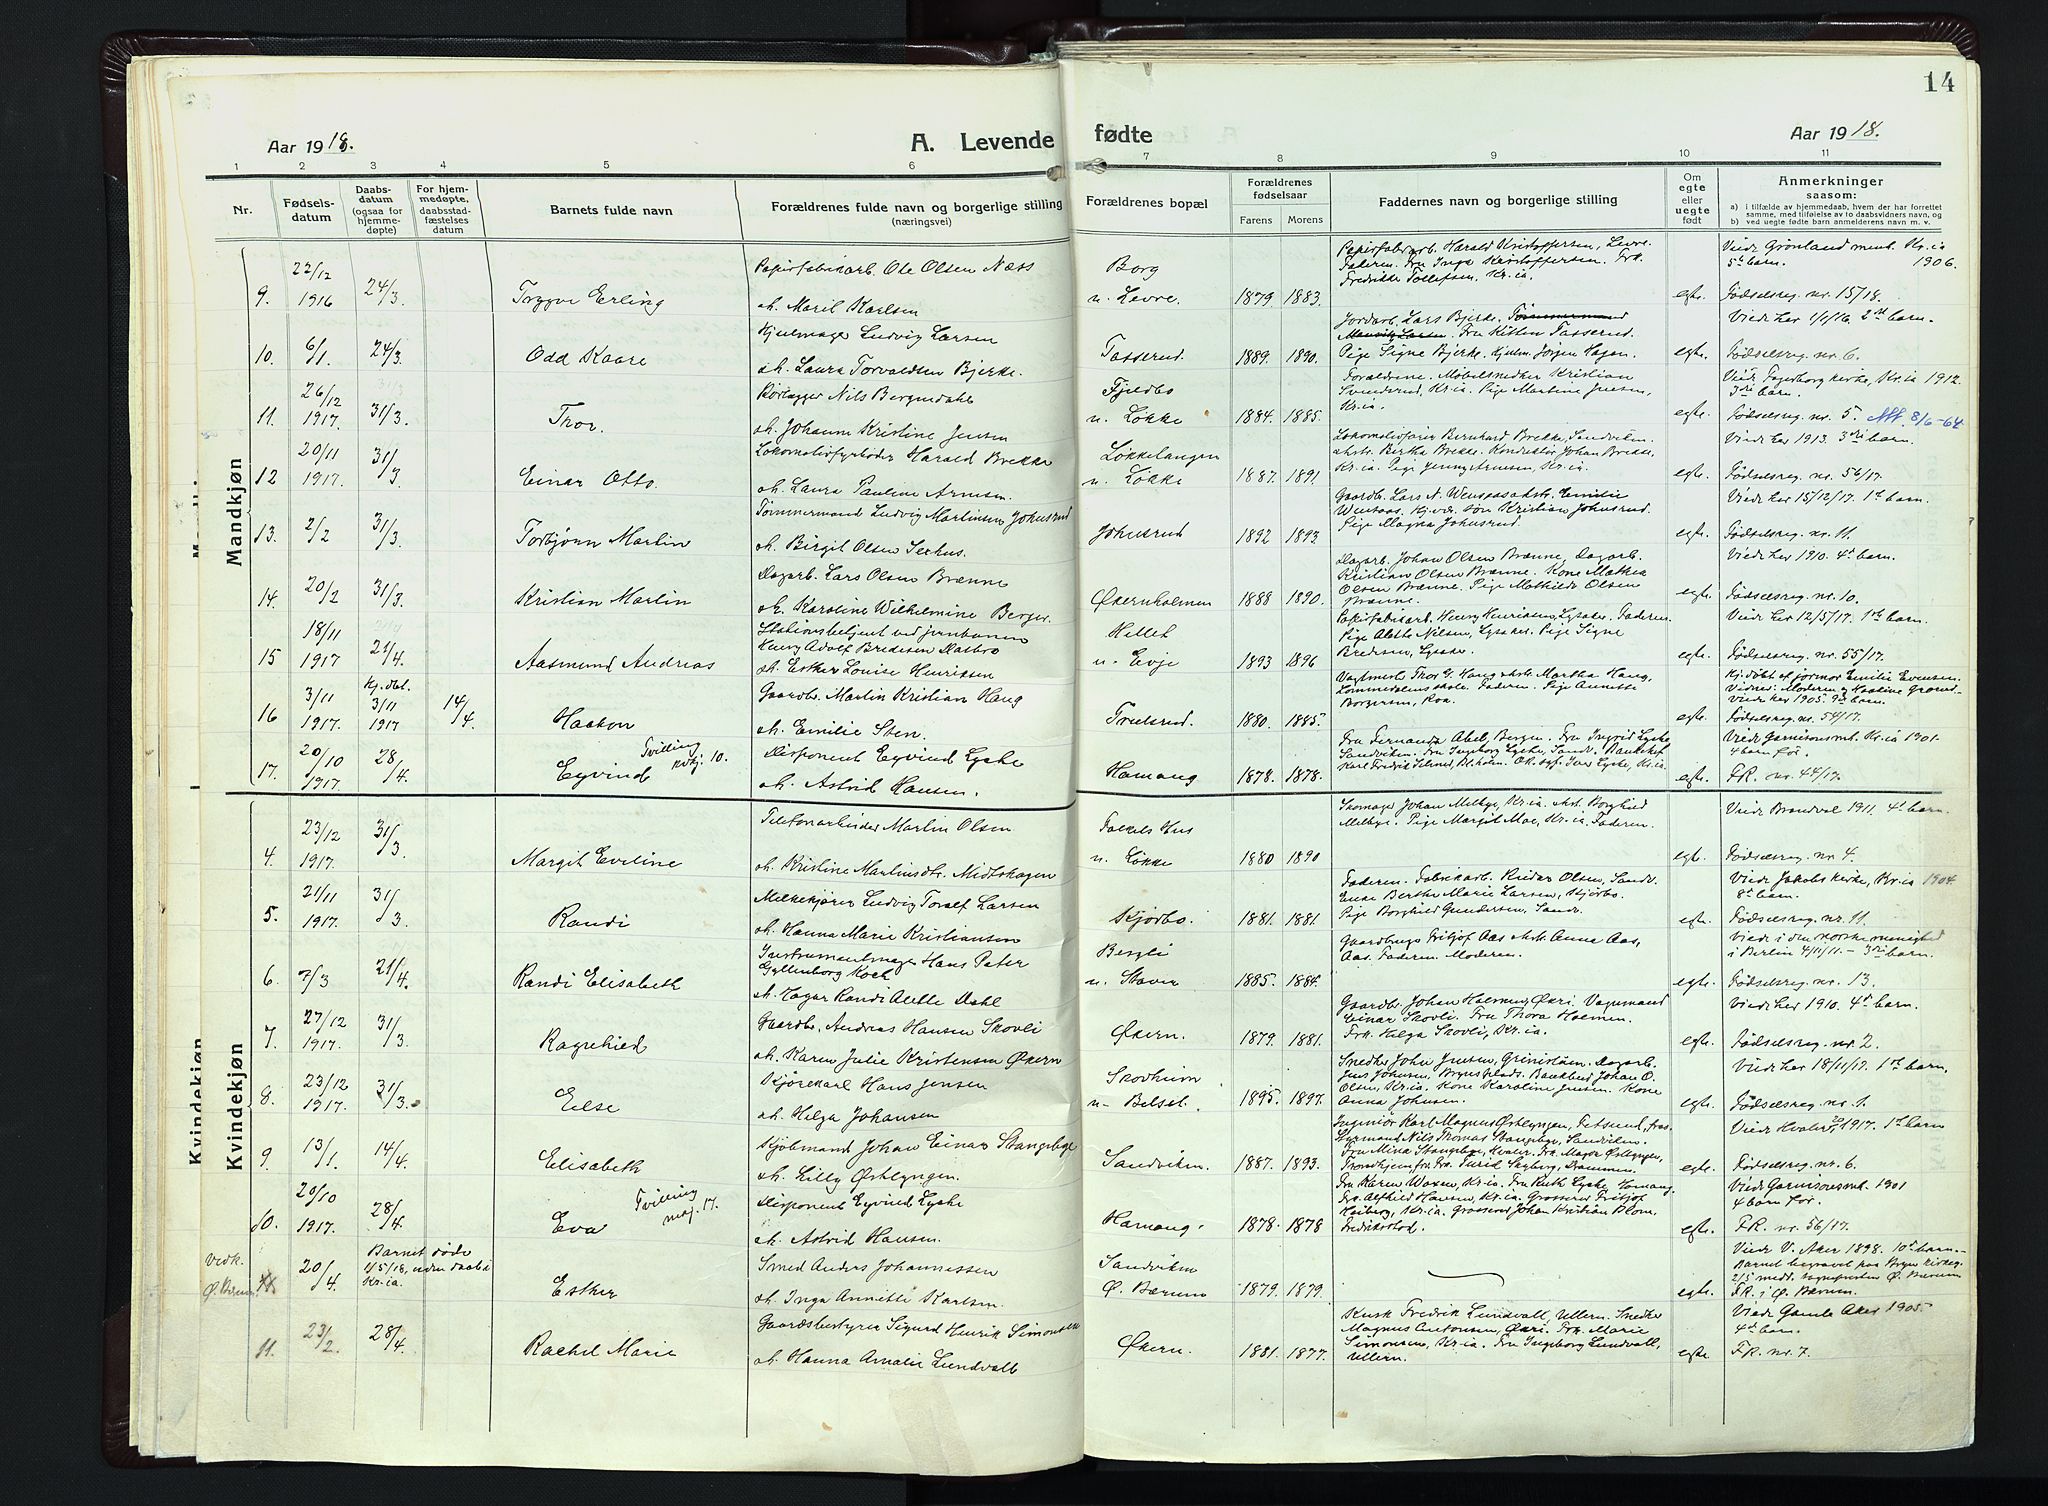 14
Aar 1918.
A. Levende
fødte
Aar 1918.
1 2 3 4 5 6 7 8 9 10 11
Nr.
Fødsels-
datum
Daabs-
datum
(ogsaa for
hjemme-
døpte)
For hjem-
medøpte,
daabsstad-
fæstelses
datum
Barnets fulde navn
Forældrenes fulde navn og borgerlige stilling
(næringsvei)
Forældrenes bopæl
Forældrenes
fødselsaar
Farens Morens
Faddernes navn og borgerlige stilling
Om
egte
eller
uegte
født
Anmerkninger
saasom:
a) i tilfælde av hjemmedaab, hvem der har forrettet
samme, med tilføielse av to daabsvidners navn, og
b) ved uegte fødte barn anmelderens navn m. v.
Mandkjøn
22/12
1916
9. 24/3. Trygve Erling
Papirfabrikarb. Ole Olsen Næss
oh. Maril Karlsen
Borg
u. Levre. 1879 1883.
Papirfabrarb. Harald Kristoffersen, Levre.
Faderen. Fru Inga Kristoffersen. Frk.
Fredrikke Tollefsen, Kr.ia.
egte.
Viede Grønland menh. Kr.ia
5te barn. 1906.
Fødselsreg. nr. 15/18.
10. 6/1. 24/3. Odd Kaare
Hjulmager Ludvig Larsen
oh. Laura Torvaldsen Bjerke.
Tasserud. 1889. 1890.
Jordarb. Lars Bjerke.
Fru Kitten Tasserud.
Pige Signe Bjerke. Hjulm. Jørgen Hagen.
egte.
Viede her 1/1/16. 2det barn.
Fødselsreg. nr. 6.
26/12
11. 1917. 31/3. Thor.
Rørlægger Nils Bergendahl
oh. Johanne Kristine Jensen
Fjeldbo
u. Løkke 1884. 1885.
Forældrene. Møbelsnedker Kristian
Svenderud, Kr.ia. Pige Martine Jensen,
Kr.ia.
egte.
Viede Fagerborg kirke, Kr.ia 1912.
3die barn.
Fødselsreg. nr. 5. Att. 8/6-64
20/11
12 1917. 31/3. Einar Otto.
Lokomotivfyrbøder Harald Brekke
oh. Laura Pauline Arnesen.
Løkkelangen
u. Løkke 1887. 1891
Lokomotivfører Bernhard Brekke, Sandviken.
ohstr. Bertha Brekke. Konduktør Johan Brekke,
Kr.ia. Pige Jenny Arnesen, Kr.ia.
egte.
Viede her 1913. 3die barn.
Fødselsreg. nr. 56/17.
13. 2/2 31/3. Torbjørn Martin
Tømmermand Ludvig Martinsen Johnsrud
oh. Birgit Olsen Sexhus.
Johnsrud 1892 1893
Gaardb. Lars N. Wensaas ohstr. Emilie
Wensaas. Kj.vær. søn Kristian Johnsrud.
Pige Magna Johnsrud.
egte.
Viede her 15/12/17. 1te barn.
Fødselsreg. nr. 11.
14. 20/2 31/3. Kristian Martin
Dagarb. Lars Olsen Brenne
oh. Karoline Wilhelmine Berger.
Økernholmen 1888 1890.
Dagarb. Johan Olsen Brænne, Dagarb.
Kristian Olsen Brænne. Kone Mathea
Olsen Brænne. Pige Mathilde Olsen
Brænne.
egte.
Viede her 1910. 4de barn.
Fødselsreg. nr. 10.
18/11
15 1917 21/4. Aasmund Andreas
Stationsbetjent ved jernbanen
Henry Adolf Bredesen Dalbro
oh. Esther Louise Henriksen
Hellet
u. Evje 1893 1896
Papirfabrikarb. Henry Henriksen, Lysaker. Faderen.
Pige Aletho Nilsen, Lysaker. Pige Signe
Bredesen, Lysaker.
egte.
Viede her 12/5/17. 1te barn.
Fødselsreg. nr. 55/17.
3/11
16 1917. Kj. dbt. 3/11 1917 14/4. Haakon
Gaardbr. Martin Kristian Haug
oh. Emilie Sten.
Trulsrud. 1880. 1885.
Vagtmester Thor G. Haug ohstr. Martha Haug,
Lommedalens skole. Faderen. Pige Annette
Borgersen, Roa.
egte.
Kj. døbt af jormor Emilie Evensen.
Vidner: Moderen og
Viede her 1905. 9de barn.
Fødselsreg. nr. 54/17.
20/10
17. 1917. 28/4. Eyvind Tvilling
kvkj. 10.
Disponent Eyvind Lyche
oh. Astrid Hansen.
Hamang 1878. 1878.
Fru Fernanda Abel, Bergen. Fru Ingrid Lyche
Sandviken. Fru Ingeborg Lyche, Sandv. Bankchef
Karl Fredrik
egte.
Viede Garnisonsmh. Kr.ia 1901.
4 barn før.
F.R. nr. 44/17.
Kvindekjøn
23/12
4. 1917. 31/3. Margit Eveline
Telefonarbeider Martin Olsen
oh. Kristine Martinsdtr. Midtskogen
Folkets Hus
u. Løkke 1880 1890
Skomager Johan Melbye, Kr.ia. ohst. Borghild
Melbye. Pige Margit Moe, Kr.ia. Faderen.
egte.
Viede Brandval 1911. 4de barn.
Fødselsreg. nr 4.
21/11
5. 1917. 31/3. Randi
Melkekjører Ludvig Toralf Larsen
oh. Hanna Marie Kristiansen
Skjørbo. 1881. 1881.
Faderen. Fabrikarb. Reidar Olsen, Sandv.
Enke Berthe Marie Larsen, Kjørbo.
Pige Borghild Gundersen, Sandv.
egte.
Viede Jakobs kirke, Kr.ia 1904.
8de barn.
Fødselsreg. nr. 11.
6. 7/3 21/4. Randi Elisabeth
Instrumentmager Hans Peter
Gyllenborg Koch
oh. Hagar Randi Alette Dahl
Bergli
u. Stovin 1885. 1884.
Gaardbruger Fritjof Aas ohstr. Anna Aas,
Aas. Faderen. Moderen.
egte.
Viede i den norske menighed
i Berlin 4/11/11. - 3die barn.
Fødselsreg. nr. 13.
27/12
7. 1917. 31/3. Ragnhild
Gaardbr. Andreas Hansen Skovli
oh. Karen Julie Kristensen Økern
Økern. 1879. 1881.
Gaardbr. Johan Holmen, Økri. Vognmand
Einar Skovli. Fru Thora Holmen.
Frk. Helga Skovli, Kr.ia.
egte.
Viede her 1910. 4de barn.
Fødselsreg. nr. 2.
23/12
8. 1917. 31/3. Else
Kjørekarl Hans Jensen
oh. Helga Johansen
Skovheim
u. Belset. 1895. 1897.
Snedker John Jensen, Grinistuen. Dagarb.
Jens Johnsen, Brynsplads. Bankbud Johan O.
Olsen, Kr.ia. Kone Karoline Jensen. Kone
Anna Johnsen.
egte.
Viede her 18/11/17. 1te barn.
Fødselsreg. nr. 1.
9. 13/1. 14/4. Elisabeth
Skjøbmand Johan Einar Stangebye
oh. Lilly Østlyngen.
Sandviken. 1887. 1893.
Ingeniør Karl Magnus Østlyngen, Fetsund,
Styrmand Nils Thomas Stangebye, Sandviken.
Fru Mina Stangebye, Hvaler. Fru Major Østlyngen,
Trondhjem
egte.
Viede Hvaler 1917. 1te barn
Fødselsreg. nr. 6.
20/10
10. 1917. 28/4. Eva Tvilling
maj. 17.
Disponent Eyvind Lyche
oh. Astrid Hansen.
Hamang. 1878. 1878
Fru Karen Waxen, Kr.ia. Fru Ruth Lyche Hamang.
Fru Alfhild Hansen, Kr.ia. Grosserer Fritjof
Heiberg, Kr.ia. Grosserer Johan Kristian Blom,
Fredrikstad.
egte.
Viede Garnisonsmh. 1901
4 barn før.
F.R. nr. 56/17.
Vedk.
Ø. Bærum 20/4 Barnet døde
1/5/18, uden daab i
Kr.ia.
Esther
Smed Anders Johannessen
oh. Inga Annette Karlsen.
Sandviken
Ø. Bærum 1879. 1879.
egte.
Viede V. Aker 1898. 10de barn.
Barnet begravet paa Bryn kirkeg.
2/5 medd. sognepresten Ø. Bærum
F.R. i Ø. Bærum.
11. 23/2. 28/4. Rachel Marie
Gaardsbestyrer Sigurd Henrik Simonsen
oh. Hanna Amalie Lundvall
Økern. 1881. 1877.
Kusk Fredrik Lundvall, Ullern. Snedker
Magnus Antonsen, Økri. Frk. Marie
Simonsen, Kr.ia. Fru Ingeborg Lundvall,
Ullern.
egte.
Viede Gamle Aker 1905
4de barn.
F.R. nr. 7.